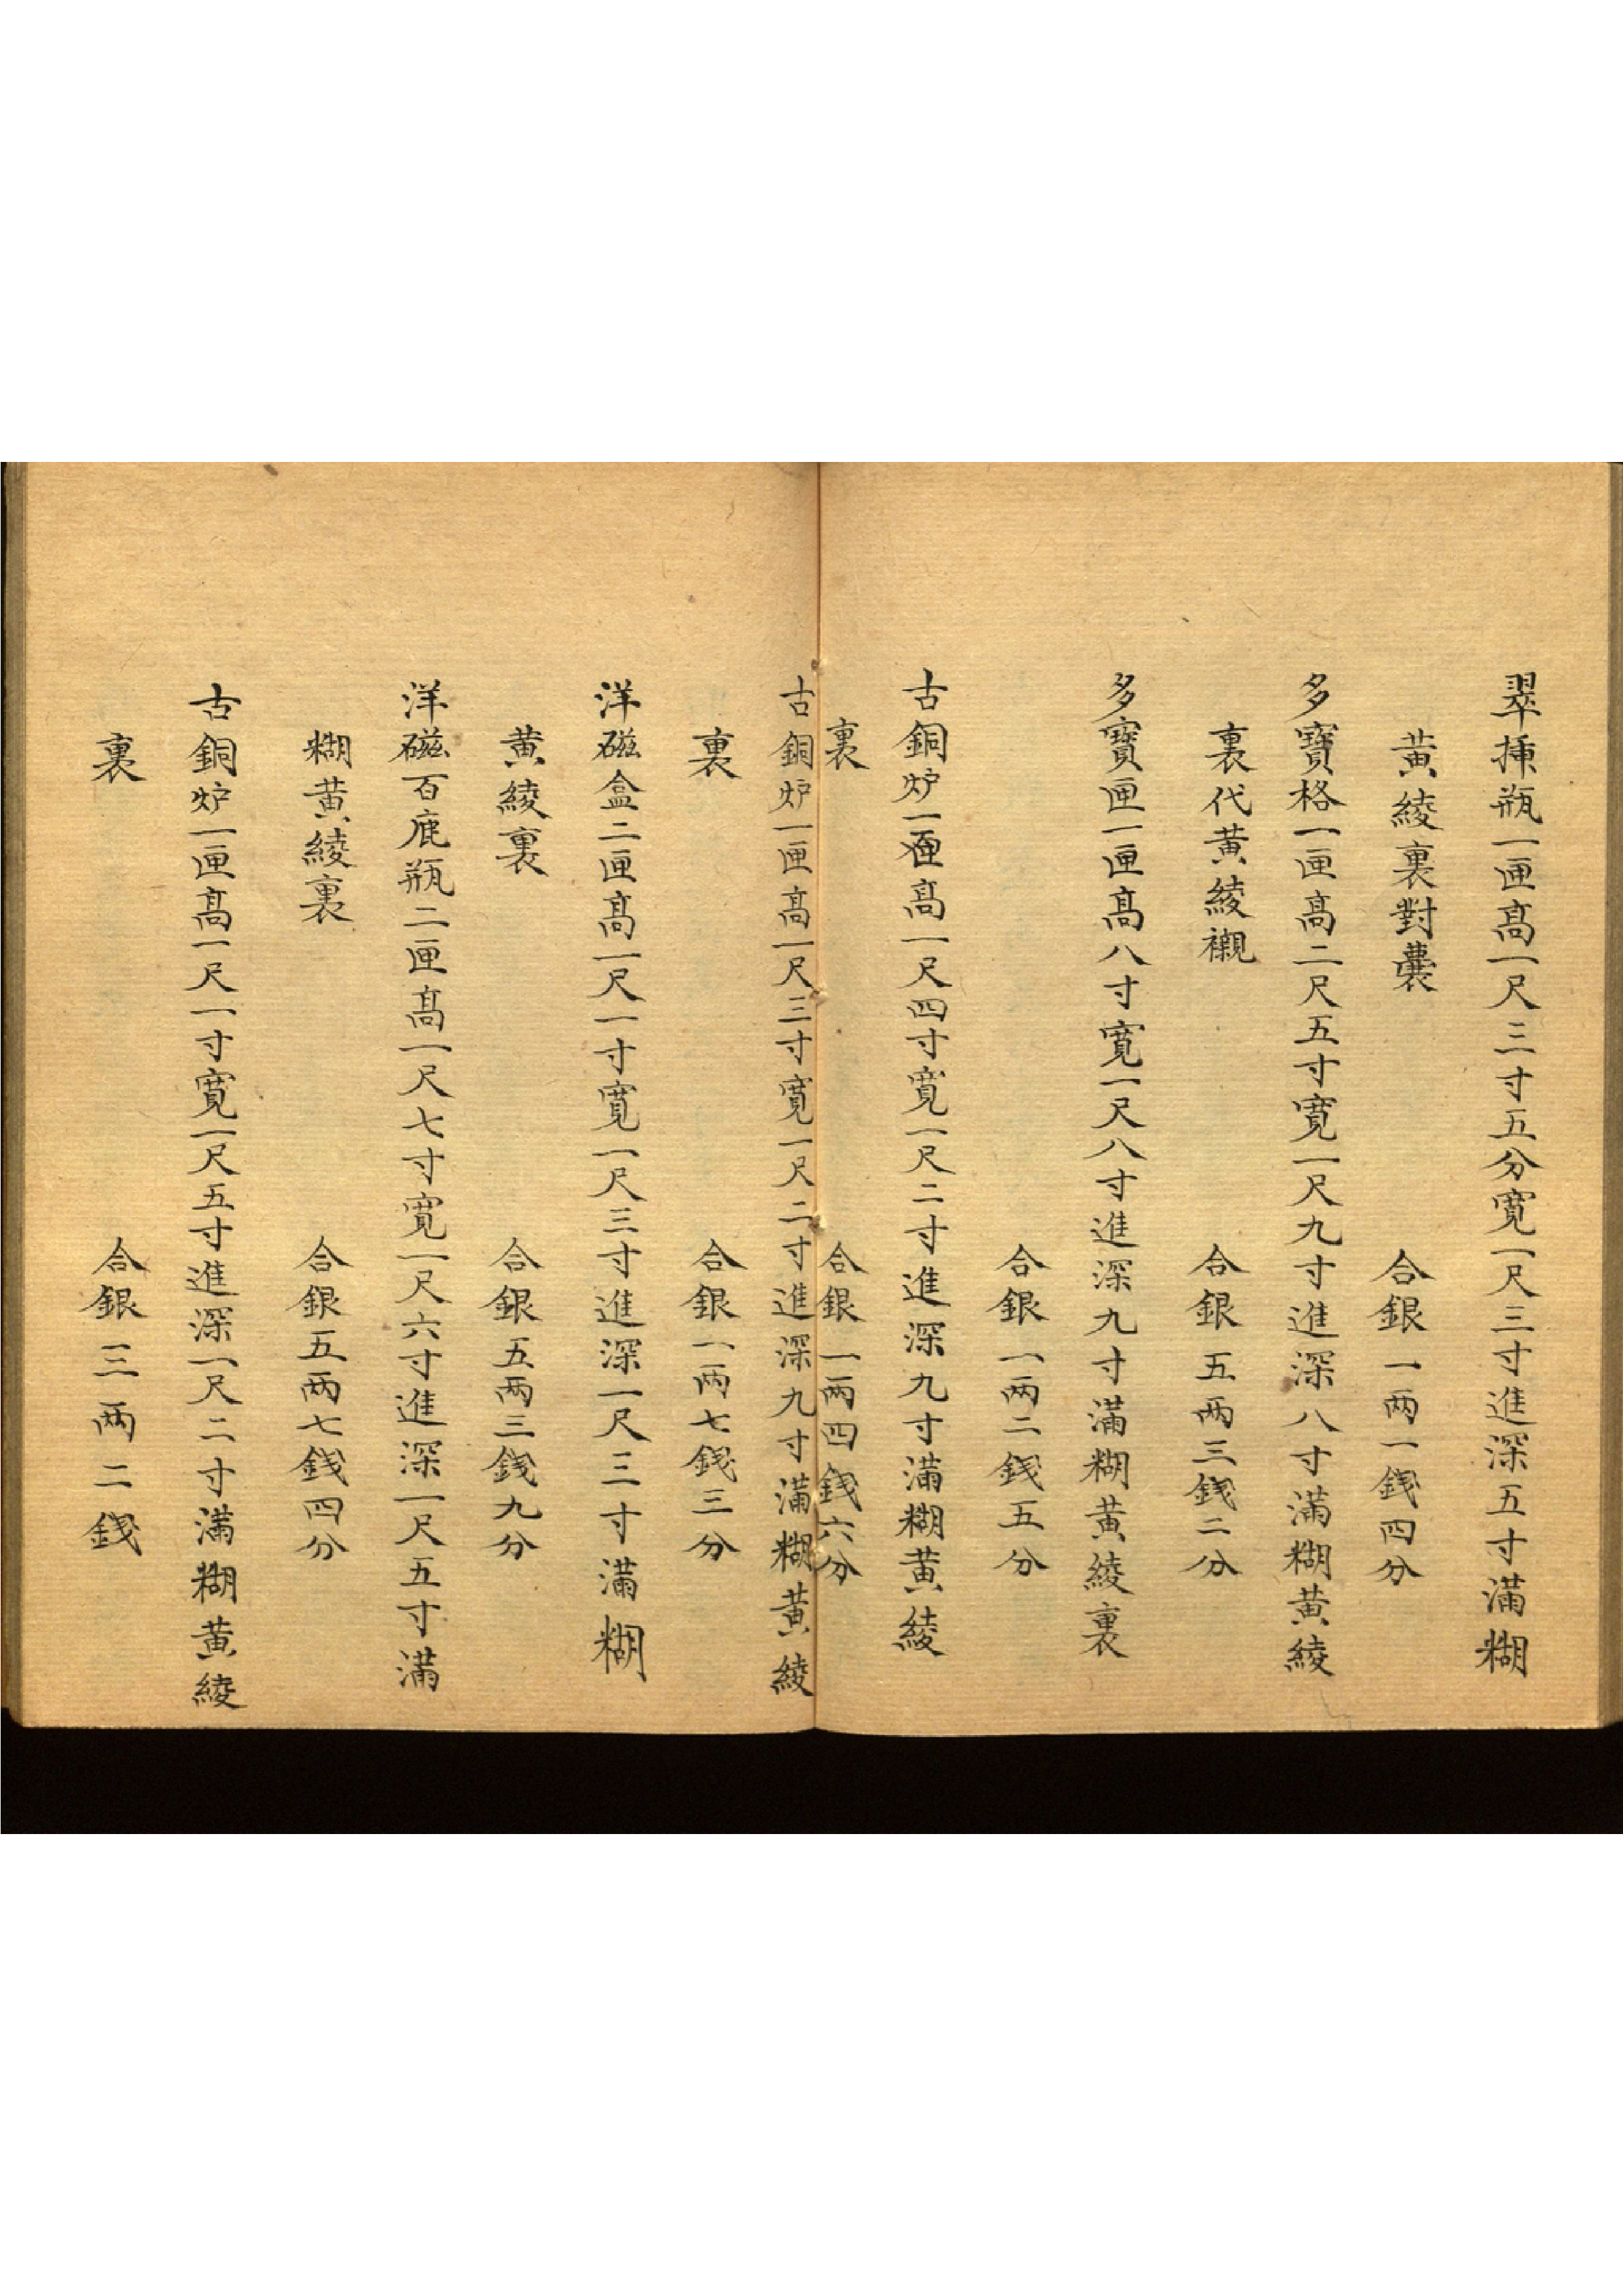 翠揷瓶一匣髙一尺三寸五分寬一尺三寸進深五寸滿糊
黃綾裏對囊
合銀一两一錢四分
多寶格一匣髙二尺五寸寬一尺九寸進深八寸滿糊黃綾
裏代黃綾襯
合銀五两三錢二分
多寶匣一匣髙八寸寬一尺八寸進深九寸滿糊黃綾裏
合銀一两二錢五分
古銅炉一匣髙一尺四寸寬一尺二寸進深九寸滿糊黃綾
裏
合銀一两四錢六分
古銅炉一匣髙一尺三寸寬一尺二寸進深九寸滿糊黃綾
裏
合銀一两七錢三分
洋磁盒二匣髙一尺一寸寬一尺三寸進深一尺三寸滿糊
黃綾裏
合銀五两三錢九分
洋磁百鹿瓶二匣髙一尺七寸寬一尺六寸進深一尺五寸滿
糊黃綾裏
合銀五两七錢四分
古銅炉一匣髙一尺一寸寬一尺五寸進深一尺二寸滿糊黃綾
裏
合銀三两二錢